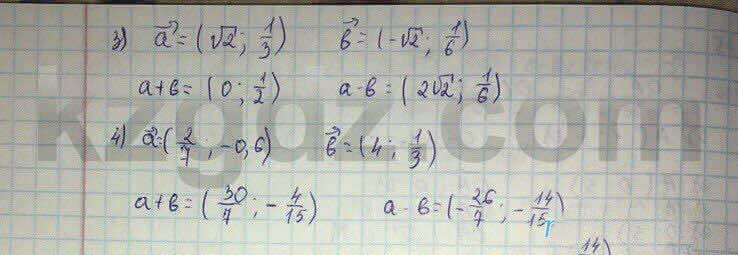 3) a⃗ = (√2; 1/3) b⃗ = (-√2; 1/6)
a+b = (0; 1/2) a-b = (2√2; 1/6)
kzgdz.com
4) a⃗ = (2/7; -0,6) b⃗ = (4; 1/3)
a+b = (30/7; -4/15) a-b = (-26/7; -14/15)
14)